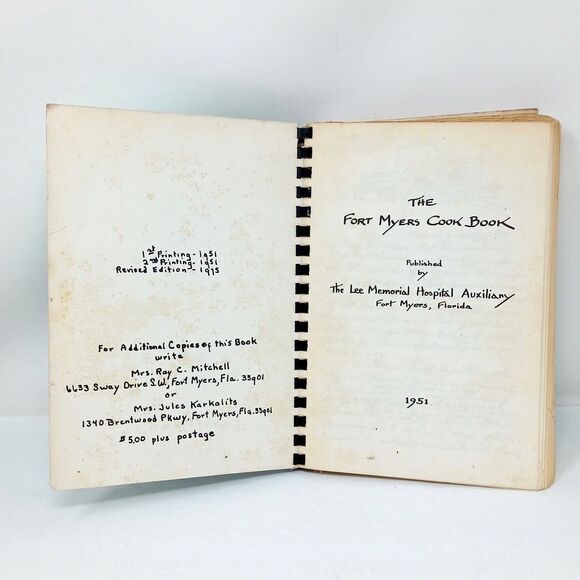 1st Printing - 1951
2nd Printing - 1951
Revised Edition - 1975
For Additional Copies of this Book
write
Mrs. Ray C. Mitchell
6633 Sway Drive S.W., Fort Myers, Fla. 33901
or
Mrs. Jules Karkalits
1340 Brentwood Pkwy, Fort Myers, Fla. 33901
$5.00 plus postage
THE
FORT MYERS COOK BOOK
Published
by
The Lee Memorial Hospital Auxiliary
Fort Myers, Florida
1951